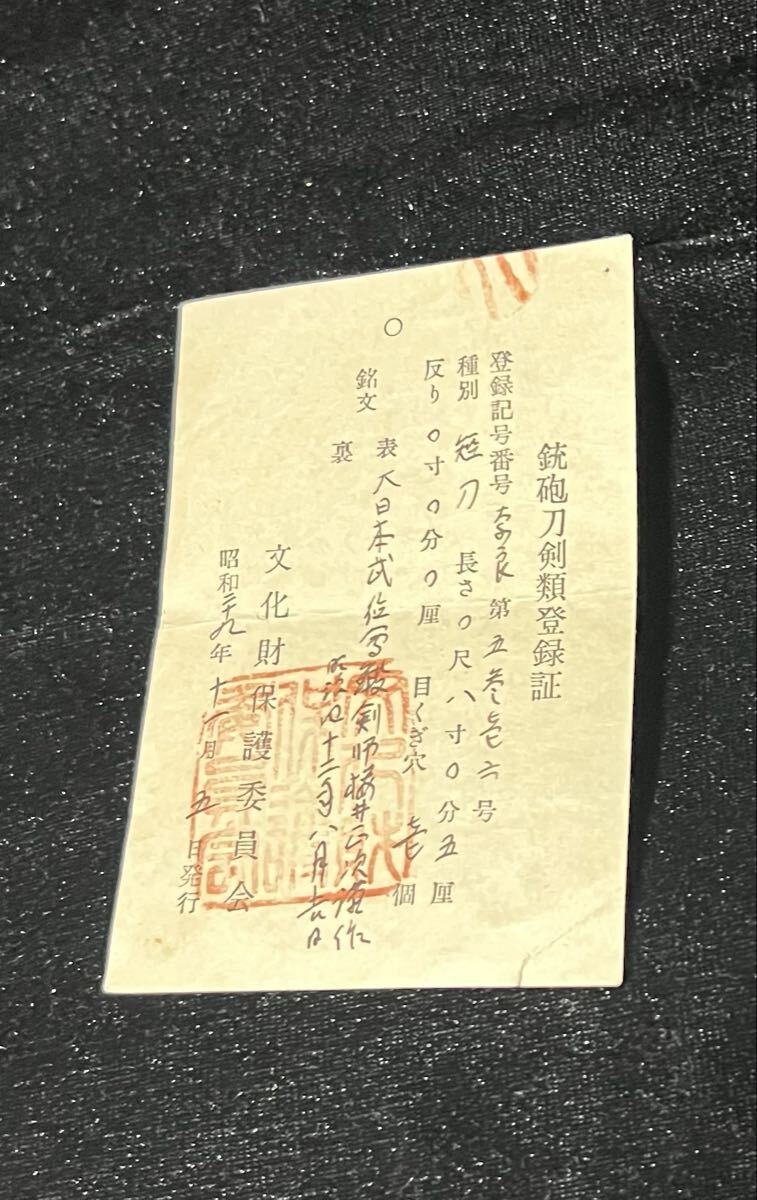 銃砲刀剣類登録証
登録記号番号 奈良 第五参壱六号
種別 短刀 長さ〇尺八寸〇分五厘
反り〇寸〇分〇厘 目くぎ穴 壱個
銘文 表 大日本武位 剣師桜井正次謹作
裏 十二年八月 日
文化財保護委員会
昭和二十九年十一月五日発行